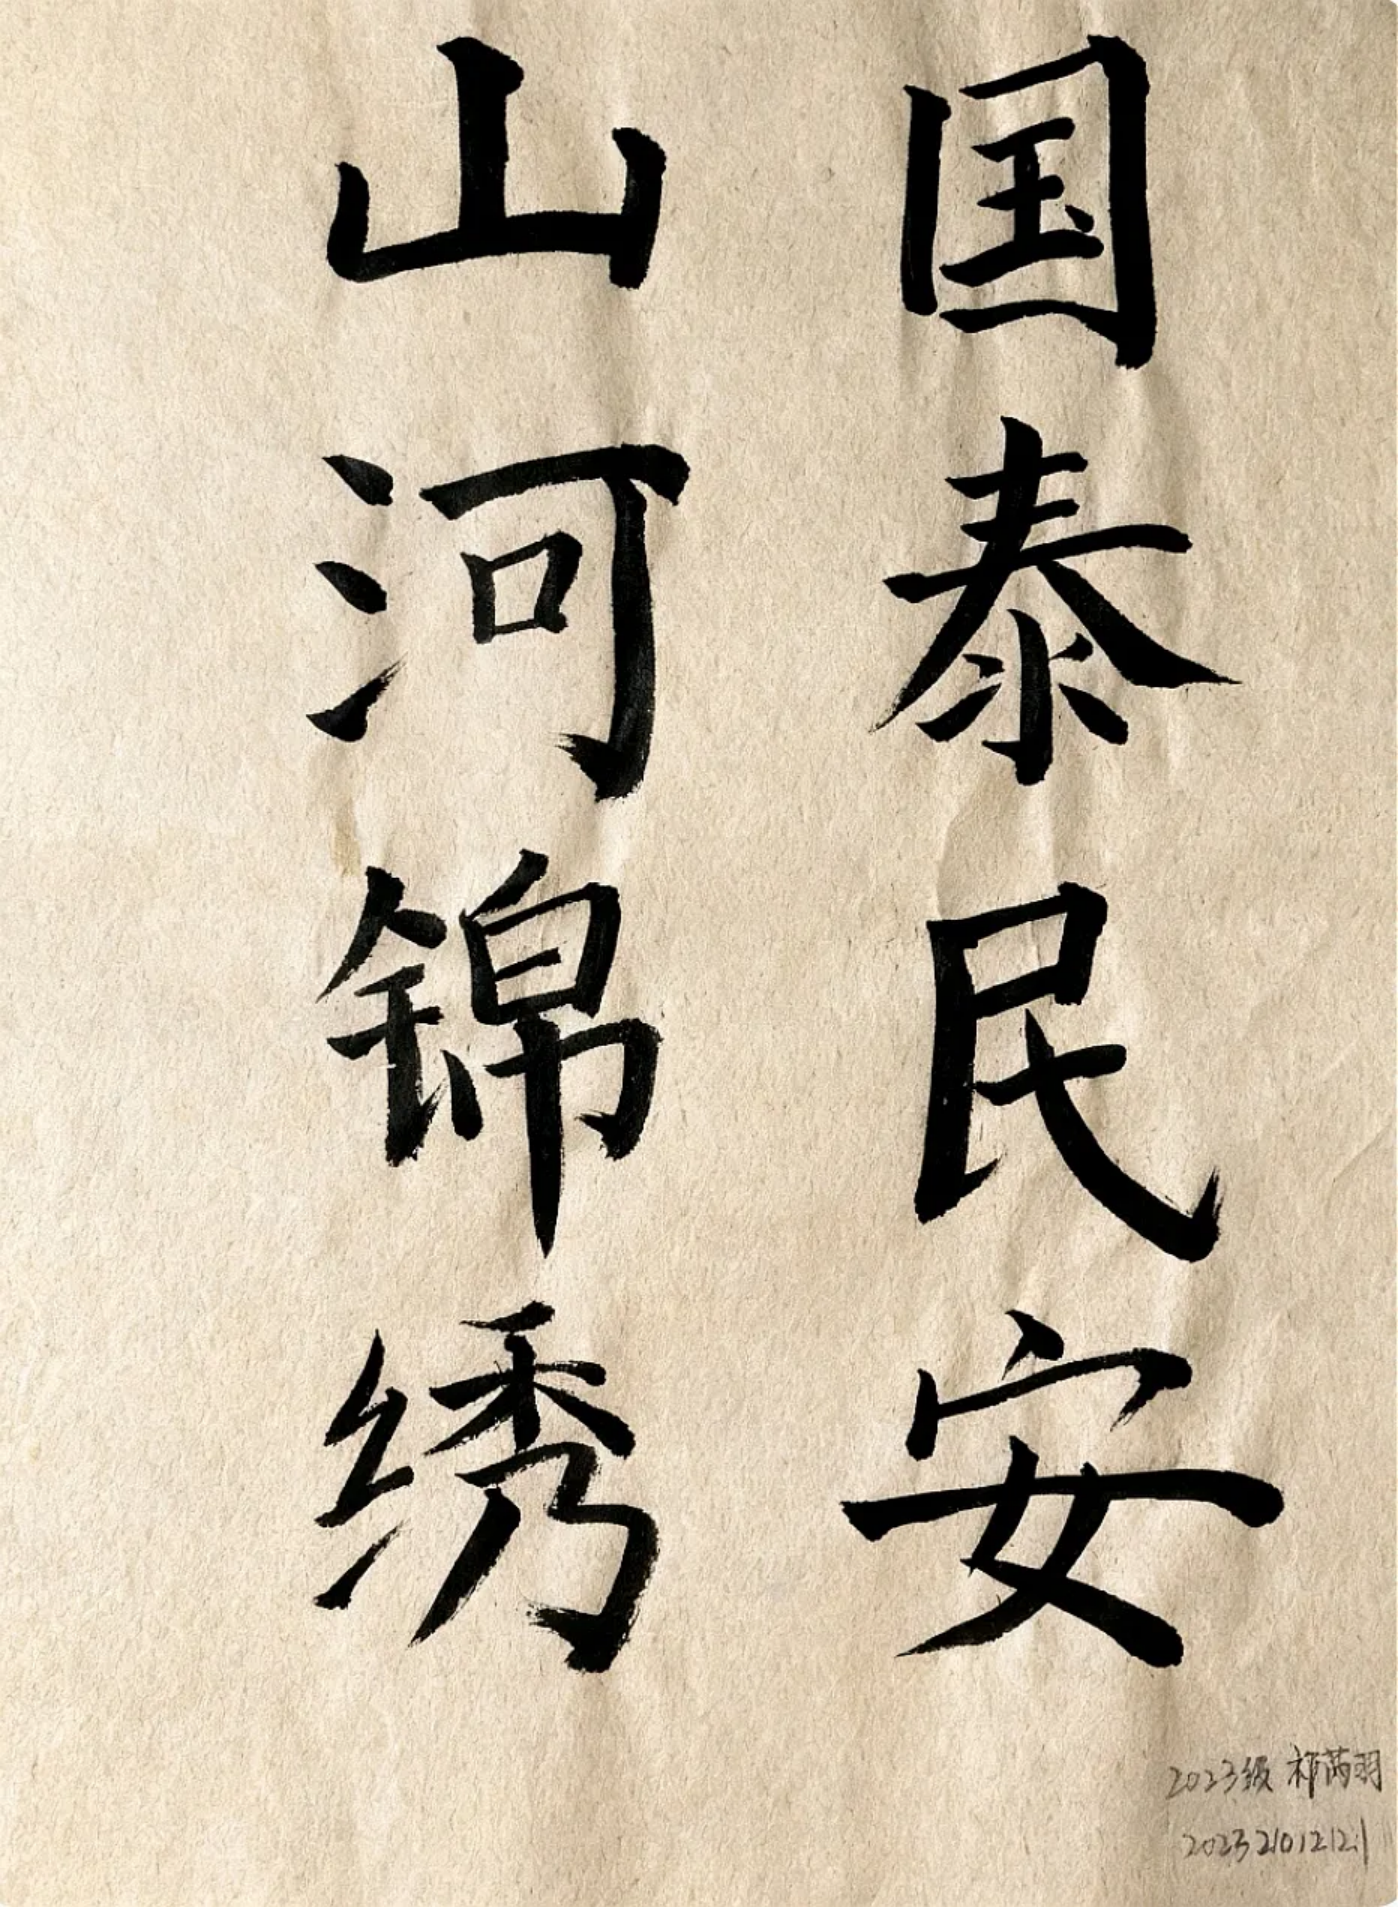 国泰民安
山河锦绣
2023级 祁芮羽
202321012121